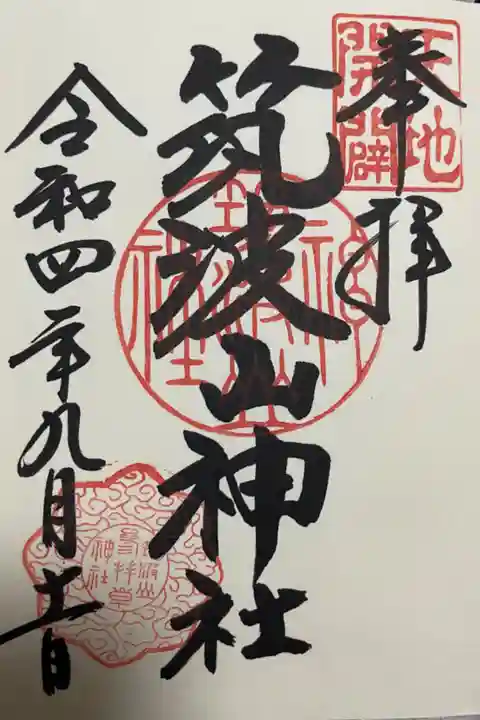 天地
開闢
奉拝
筑波山神社
令和四年九月十一日
筑波山
神社
参拝章